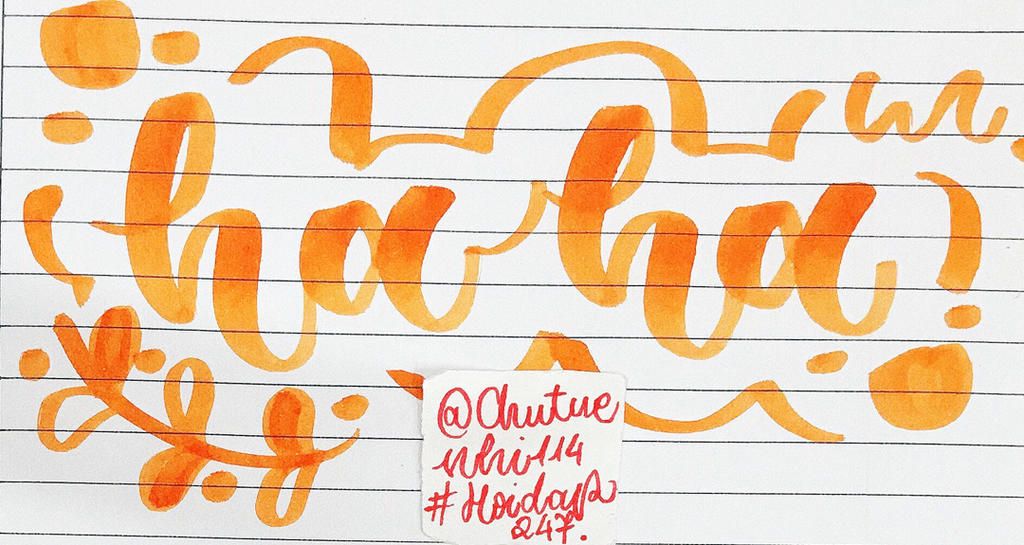 haha
@Chutue
nhi114
#Hoidap
247.